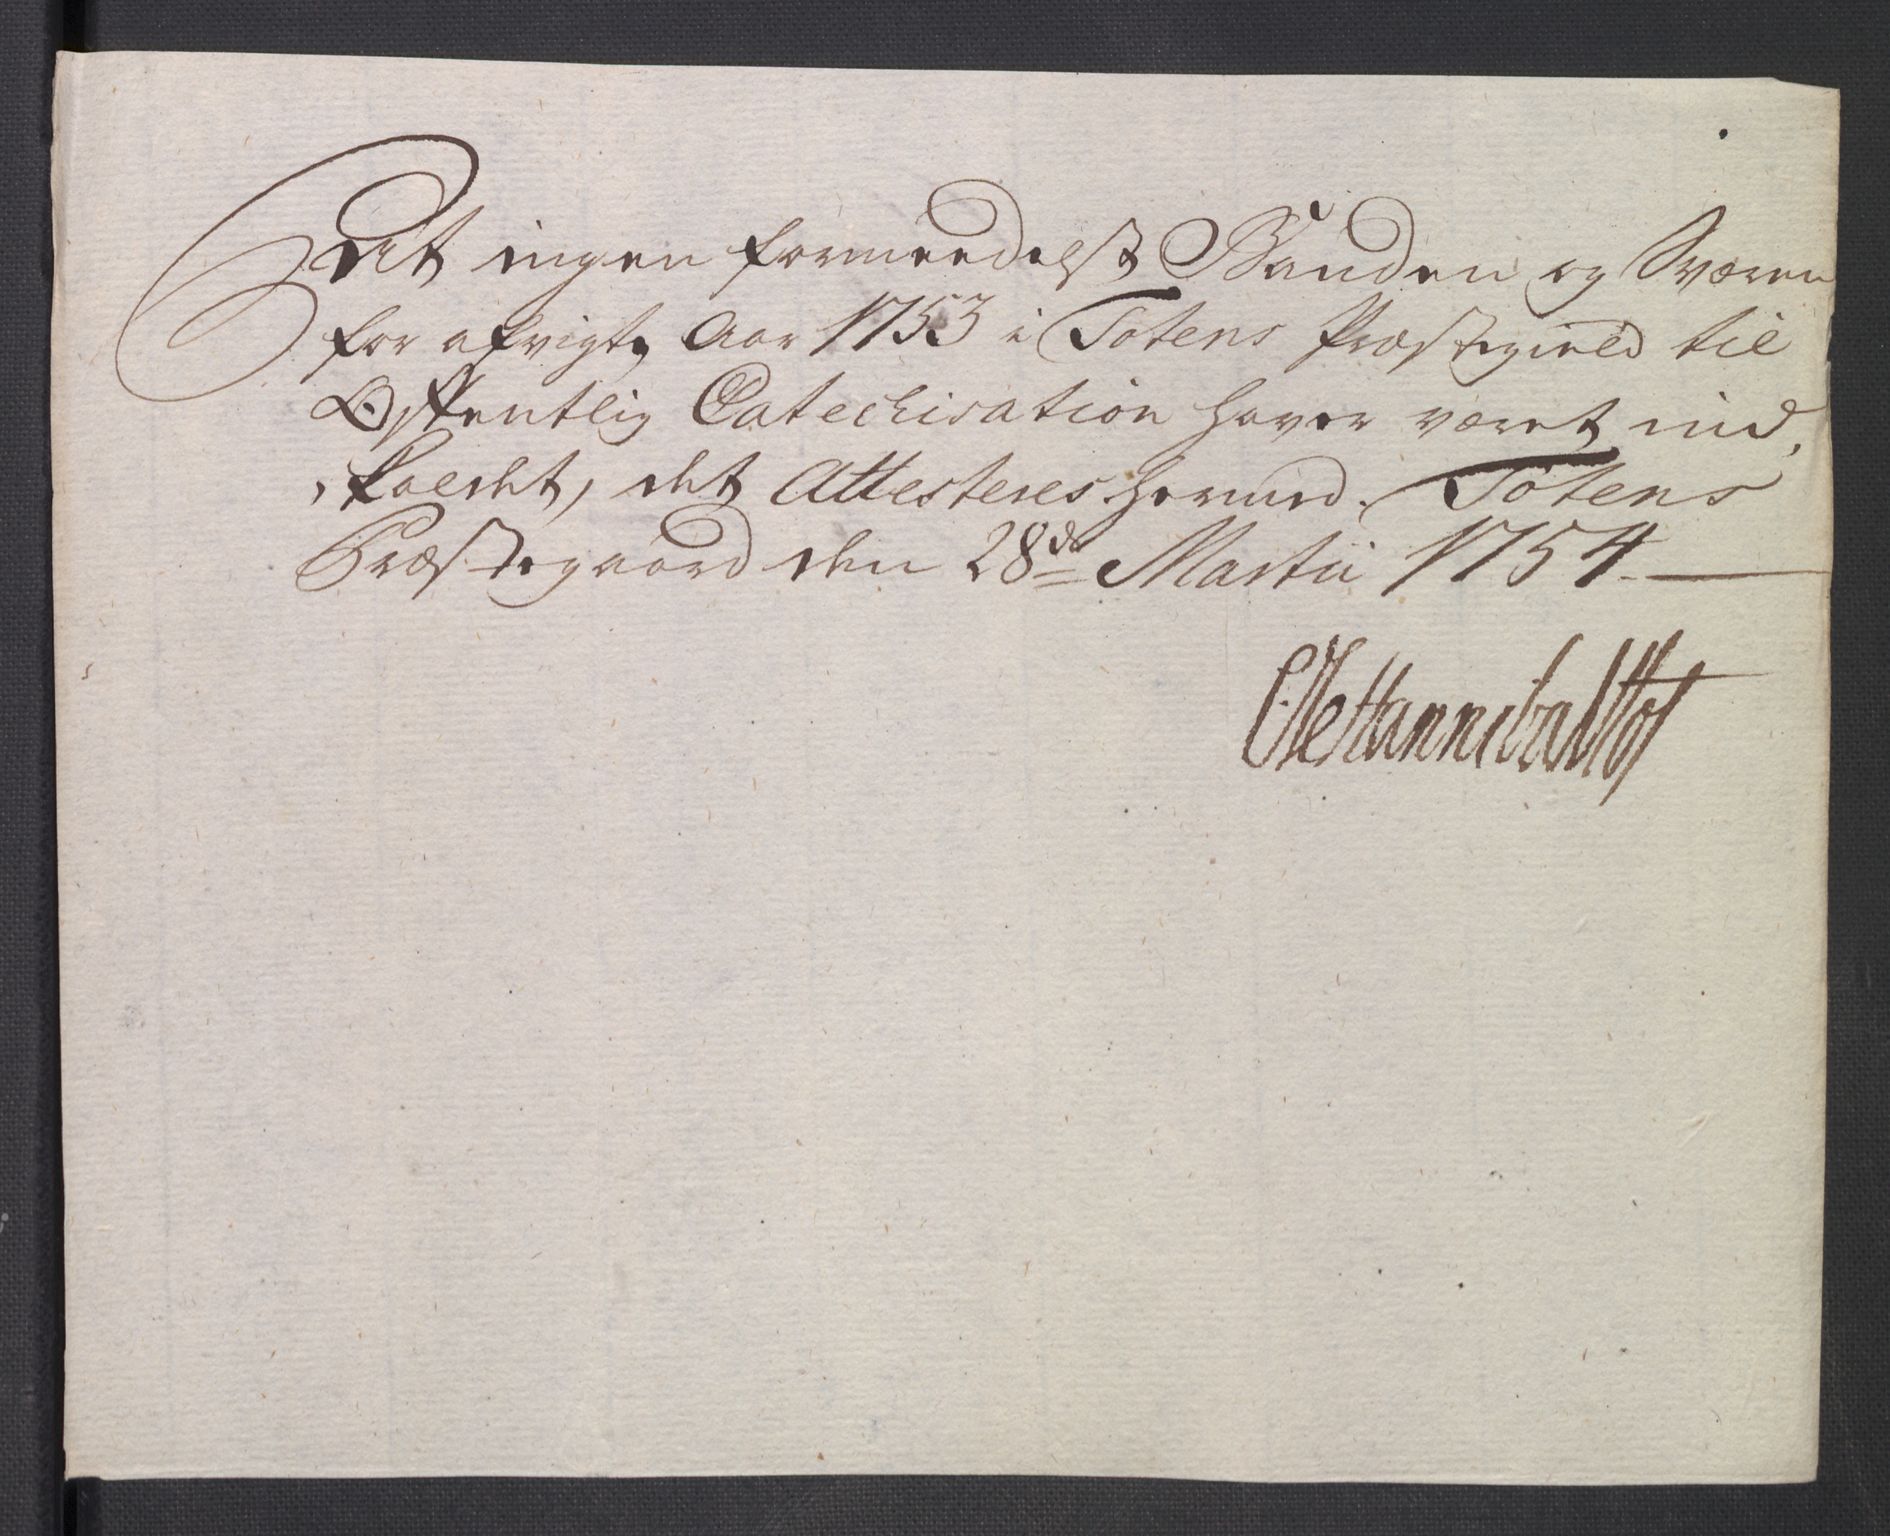 At ingen formeedelst Banden og Sværen
for afvigte Aar 1753 i Totens Præstegield til
Offentlig Catechisation haver været ind,
,kaldet, det Attesteres herved. Totens
Præstegaard den 28de Martii 1754.